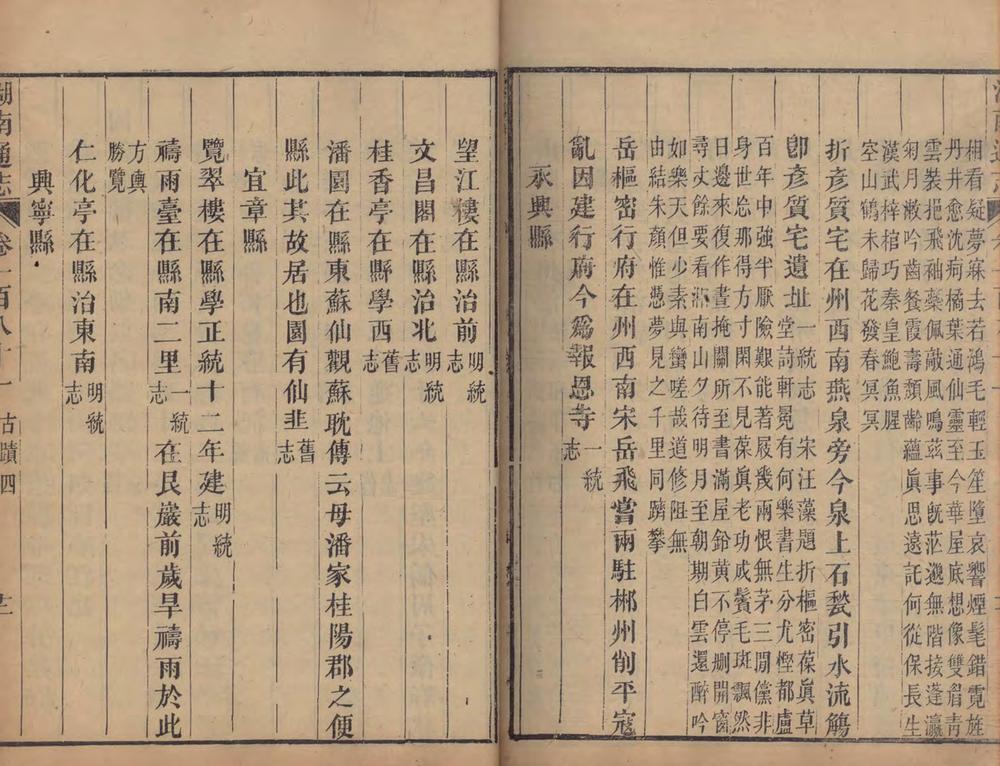 相看疑夢寐去若鴻毛輕玉笙墮哀響煙髦錯霓旌
丹井愈沈疴橘葉通仙靈至今華屋底想像雙眉青
雲裝挹飛袖蘂佩敲風鳴茲事旣茫邈無階接蓬瀛
匊月漱吟齒餐霞壽頽齡蘊眞思遠託何從保長生
漢武梓棺巧秦皇鮑魚腥
空山鶴未歸花發春冥冥
折彥質宅在州西南燕泉旁今泉上石甃引水流觴
卽彥質宅遺址一統志 宋汪藻題折樞密葆眞草
堂詩軒冕有何樂書生分尤慳都盧
百年中強半厭險艱能著屐幾兩恨無茅三閒儻非
身世忘那得方寸閑不見葆眞老功成鬢毛斑飄然
日邊來復作晝掩關所至書滿屋鈴黃不停刪開窗
尋丈餘要看南山夕待明月至朝期白雲還醉吟
如樂天但少素與蠻嗟哉道修阻無
由結朱顏惟慿夢見之千里同躋攀
岳樞密行府在州西南宋岳飛嘗兩駐郴州削平寇
亂因建行府今爲報恩寺一統志
永興縣
望江樓在縣治前明統志
文昌閣在縣治北明統志
桂香亭在縣學西舊志
潘園在縣東蘇仙觀蘇耽傳云母潘家桂陽郡之便
縣此其故居也園有仙韭舊志
宜章縣
覽翠樓在縣學正統十二年建明統志
禱雨臺在縣南二里一統志在民巖前歲旱禱雨於此
方輿勝覽
仁化亭在縣治東南明統志
興寧縣
湖南通志 卷一百八十一 古蹟四